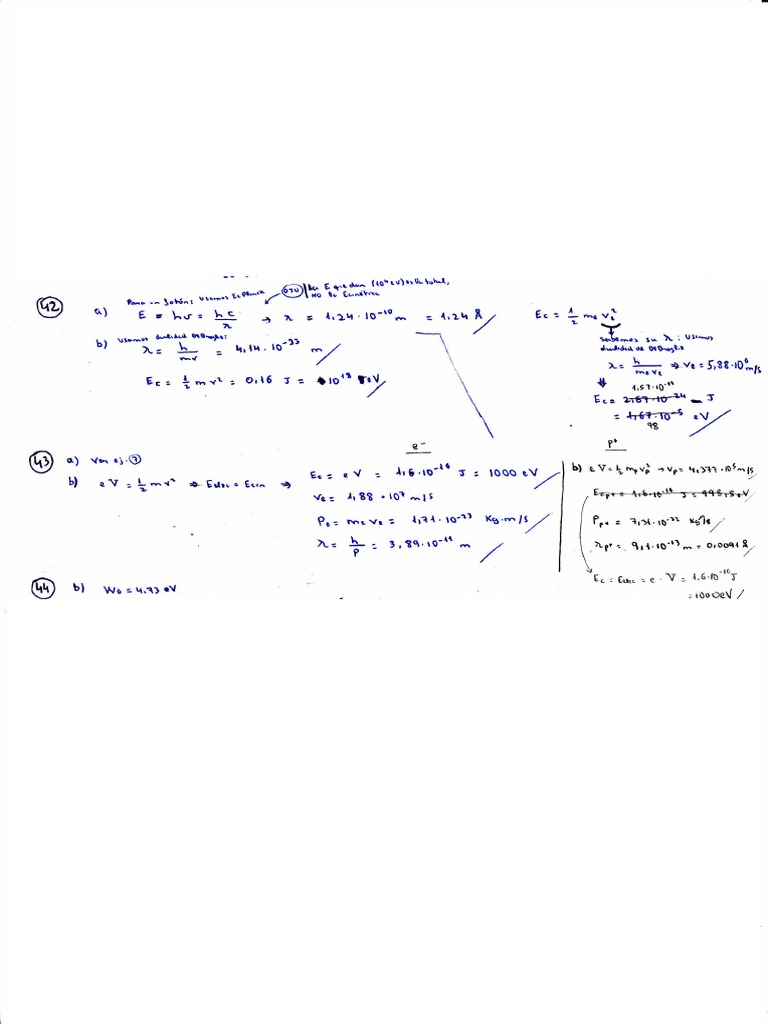 42
Para un fotón: usamos Ec Planck
OJO La E que dan (10⁴ eV) es la total,
NO la cinética
a) E = hν = hc/λ → λ = 1,24·10⁻¹⁰ m = 1,24 Å
b) Usamos dualidad De Broglie:
λ = h/mv = 4,14·10⁻³³ m
Ec = 1/2 mv² = 0,16 J = 10¹⁸ eV
Ec = 1/2 me ve²
Sabemos su λ: Usamos
dualidad de De Broglie
λ = h/me ve ⇒ ve = 5,88·10⁶ m/s
1,57·10⁻¹⁷
Ec = 2,67·10⁻²⁴ J
= 1,67·10⁻⁵ eV
98
43
a) Ver ej. 7
b) eV = 1/2 mv² ⇒ Eelec = Ecin ⇒
e⁻
Ec = eV = 1,6·10⁻¹⁶ J = 1000 eV
ve = 1,88·10⁷ m/s
Pe = me ve = 1,71·10⁻²³ Kg·m/s
λ = h/P = 3,89·10⁻¹¹ m
p⁺
b) eV = 1/2 mp vp² → vp = 4,377·10⁵ m/s
Ecp+ = 1,6·10⁻¹⁶ J = 998,8 eV
Pp+ = 7,31·10⁻²² Kg m/s
λp+ = 9,1·10⁻¹³ m = 0,0091 Å
Ec = Eelec = e·V = 1,6·10⁻¹⁶ J
= 1000 eV
44
b) W₀ = 4,73 eV